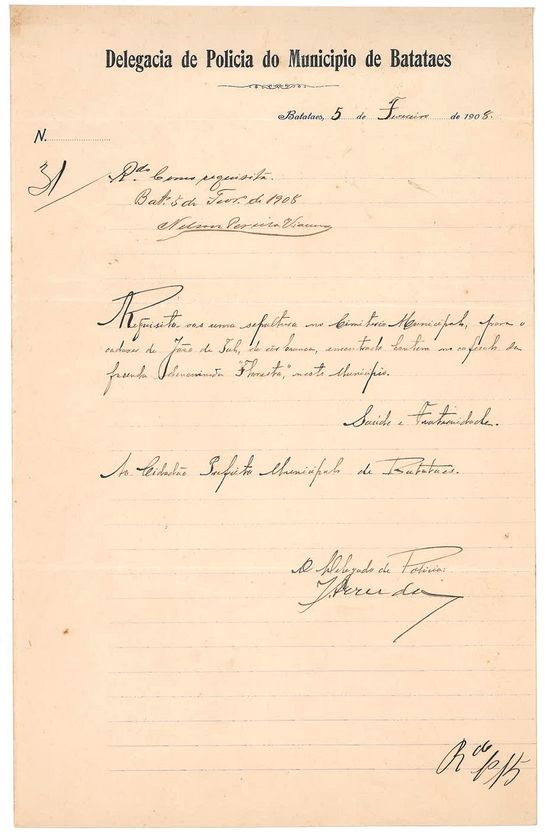 Delegacia de Policia do Municipio de Batataes
Batataes, 5 de Fevereiro de 1908.
N.
31
Rdo. Como requisita.
Batês 5 de Fevr. de 1908
Nelson Pereira Vianna
Requisita vos uma sepultura no Cemiterio Municipal, para o
cadaver de João de Tal, de côr branca, encontrado hontem no cafesal da
fazenda denominada "Floresta", neste Municipio.
Saúde e Fraternidade.
Ao Cidadão Prefeito Municipal de Batataes.
O Delegado de Policia:
Rdo